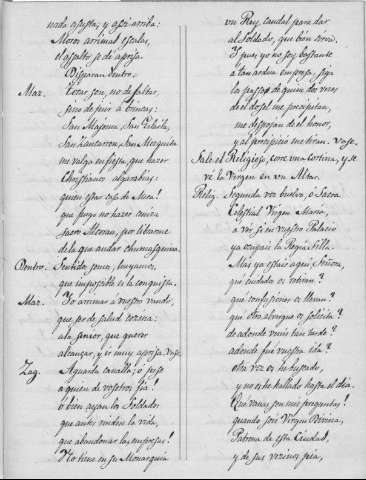 nada asusta, y assi arriba:
Moros arrimad escalas,
el assalto se dè aprisa.
Disparan dentro.
Maz. Estar son, no de saltar,
sino de juir à brincas:
San Mahoma, San
San Zancarron, San Mezquita
me valga en fiesta, que hazer
Chrestianos algarabias;
quien estar casa de Meca!
que juego no hazer conta
Sacro Alcoran, por librarme
de la que andar chamusquina.
Dentro. Perdidos somos, huyamos,
que impossible es la conquista.
Maz. Yo arrimar à vostro vando,
que ser de salud cozina:
ala, senior, que querer
alcanzar, y ir muy aprisa. Vase.
Zag. Aguarda canalla; ò pese
à quien de vosotros fia!
ò bien ayan los Soldados
que antes rinden la vida,
que abandonar las empresas!
No tiene en su Monarquia
vn Rey, caudal para dar
al Soldado, que bien sirva.
Y pues yo no soy bastante
à tan ardua empresa, siga
los passos de quien dos vezes
del dosel me precipitan,
me despojan del honor,
y al precipicio me tiran. Vase.
Sale el Religioso, corre vna cortina, y se
vè la Virgen en vn Altar.
Relig. Segunda vez buelvo, ò Sacra
Celestial Virgen Maria,
à ver si en vuestro Palacio
ya ocupais la Regia Silla.
Mas ya estais aqui, Señora,
què cuidados os retiran?
què confusiones os llevan?
què otro albergue os solicita?
de adonde venis tan tarde?
adonde fue vuestra ida?
otra vez os he buscado,
y no os he hallado hasta el dia.
Què vanas son mis preguntas!
quando sois Virgen Divina,
Patrona de esta Ciudad,
y de sus vezinos guia,